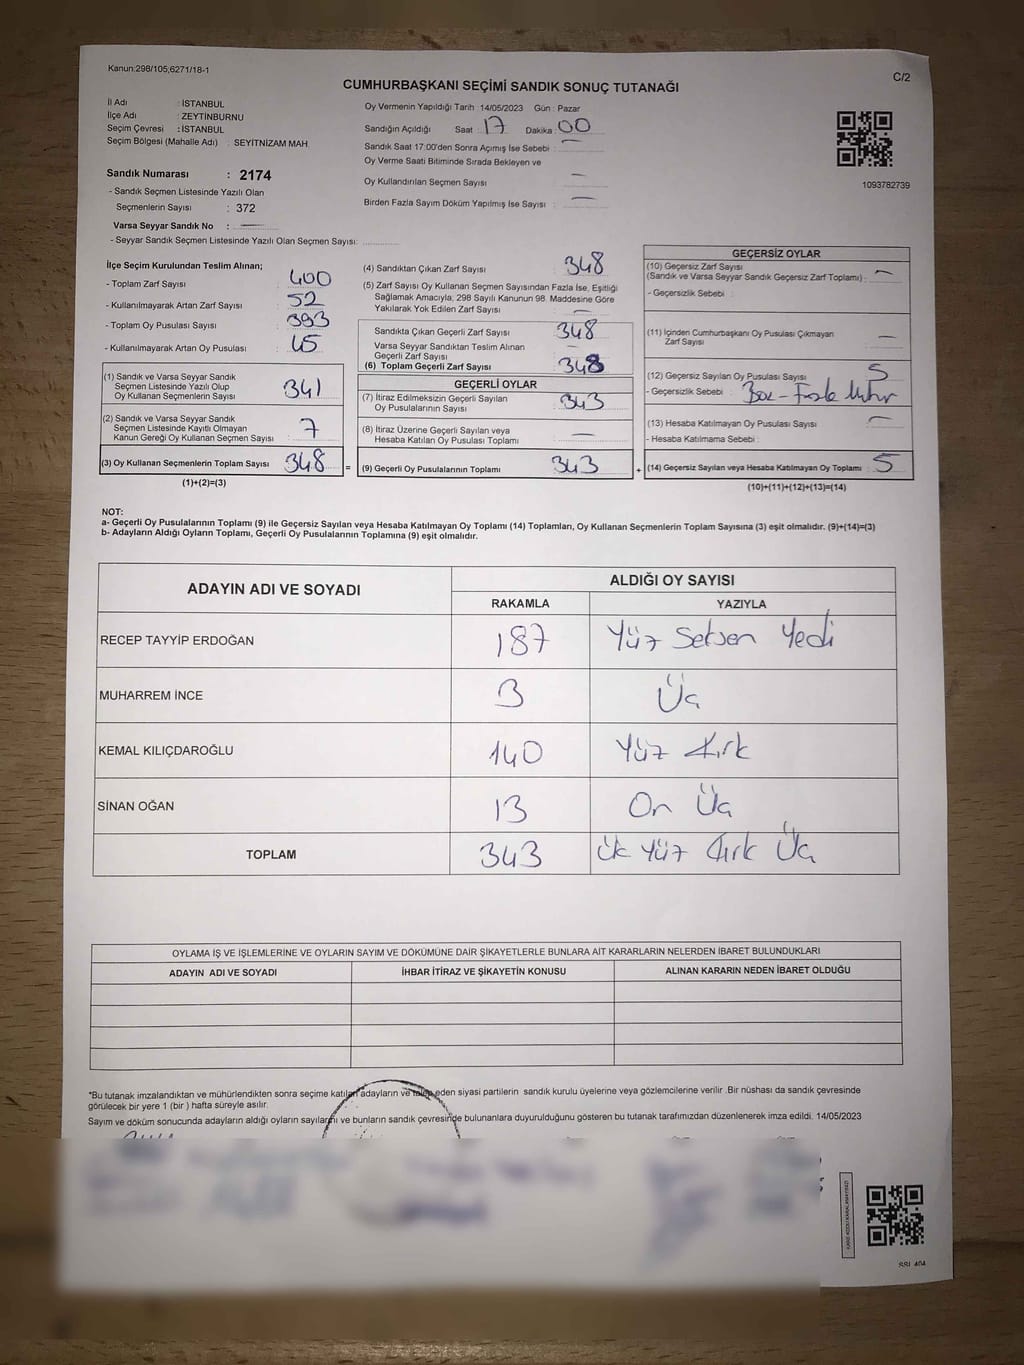 Kanun:298/105;6271/18-1
C/2
CUMHURBAŞKANI SEÇİMİ SANDIK SONUÇ TUTANAĞI
İl Adı : İSTANBUL
İlçe Adı : ZEYTİNBURNU
Seçim Çevresi : İSTANBUL
Seçim Bölgesi (Mahalle Adı) : SEYİTNİZAM MAH.
Sandık Numarası : 2174
- Sandık Seçmen Listesinde Yazılı Olan
Seçmenlerin Sayısı : 372
Varsa Seyyar Sandık No : —
- Seyyar Sandık Seçmen Listesinde Yazılı Olan Seçmen Sayısı:
Oy Vermenin Yapıldığı Tarih : 14/05/2023 Gün : Pazar
Sandığın Açıldığı Saat : 17 Dakika : 00
Sandık Saat 17:00'den Sonra Açımış İse Sebebi : —
Oy Verme Saati Bitiminde Sırada Bekleyen ve
Oy Kullandırılan Seçmen Sayısı —
Birden Fazla Sayım Döküm Yapılmış İse Sayısı : —
1093782739
İlçe Seçim Kurulundan Teslim Alınan;
- Toplam Zarf Sayısı : 400
- Kullanılmayarak Artan Zarf Sayısı : 52
- Toplam Oy Pusulası Sayısı : 393
- Kullanılmayarak Artan Oy Pusulası : 45
(1) Sandık ve Varsa Seyyar Sandık
Seçmen Listesinde Yazılı Olup
Oy Kullanan Seçmenlerin Sayısı : 341
(2) Sandık ve Varsa Seyyar Sandık
Seçmen Listesinde Kayıtlı Olmayan
Kanun Gereği Oy Kullanan Seçmen Sayısı : 7
(3) Oy Kullanan Seçmenlerin Toplam Sayısı 348 =
(1)+(2)=(3)
(4) Sandıktan Çıkan Zarf Sayısı : 348
(5) Zarf Sayısı Oy Kullanan Seçmen Sayısından Fazla İse, Eşitliği
Sağlamak Amacıyla, 298 Sayılı Kanunun 98. Maddesine Göre
Yakılarak Yok Edilen Zarf Sayısı : —
Sandıkta Çıkan Geçerli Zarf Sayısı : 348
Varsa Seyyar Sandıktan Teslim Alınan
Geçerli Zarf Sayısı : —
(6) Toplam Geçerli Zarf Sayısı : 348
GEÇERLİ OYLAR
(7) İtiraz Edilmeksizin Geçerli Sayılan
Oy Pusulalarının Sayısı : 343
(8) İtiraz Üzerine Geçerli Sayılan veya
Hesaba Katılan Oy Pusulası Toplamı : —
(9) Geçerli Oy Pusulalarının Toplamı : 343 +
GEÇERSİZ OYLAR
(10) Geçersiz Zarf Sayısı
(Sandık ve Varsa Seyyar Sandık Geçersiz Zarf Toplamı) : —
- Geçersizlik Sebebi :
(11) İçinden Cumhurbaşkanı Oy Pusulası Çıkmayan
Zarf Sayısı : —
(12) Geçersiz Sayılan Oy Pusulası Sayısı : 5
- Geçersizlik Sebebi :
(13) Hesaba Katılmayan Oy Pusulası Sayısı : —
- Hesaba Katılmama Sebebi :
(14) Geçersiz Sayılan veya Hesaba Katılmayan Oy Toplamı : 5
(10)+(11)+(12)+(13)=(14)
NOT:
a- Geçerli Oy Pusulalarının Toplamı (9) ile Geçersiz Sayılan veya Hesaba Katılmayan Oy Toplamı (14) Toplamları, Oy Kullanan Seçmenlerin Toplam Sayısına (3) eşit olmalıdır. (9)+(14)=(3)
b- Adayların Aldığı Oyların Toplamı, Geçerli Oy Pusulalarının Toplamına (9) eşit olmalıdır.
ADAYIN ADI VE SOYADI ALDIĞI OY SAYISI
RAKAMLA YAZIYLA
RECEP TAYYİP ERDOĞAN 187 Yüz Seksen Yedi
MUHARREM İNCE 3 Üç
KEMAL KILIÇDAROĞLU 140 Yüz Kırk
SİNAN OĞAN 13 On Üç
TOPLAM 343 Üç Yüz Kırk Üç
OYLAMA İŞ VE İŞLEMLERİNE VE OYLARIN SAYIM VE DÖKÜMÜNE DAİR ŞİKAYETLERLE BUNLARA AİT KARARLARIN NELERDEN İBARET BULUNDUKLARI
ADAYIN ADI VE SOYADI İHBAR İTİRAZ VE ŞİKAYETİN KONUSU ALINAN KARARIN NEDEN İBARET OLDUĞU
*Bu tutanak imzalandıktan ve mühürlendikten sonra seçime katılan adayların ve talep eden siyasi partilerin sandık kurulu üyelerine veya gözlemcilerine verilir .Bir nüshası da sandık çevresinde
görülecek bir yere 1 (bir ) hafta süreyle asılır.
Sayım ve döküm sonucunda adayların aldığı oyların sayılarını ve bunların sandık çevresinde bulunanlara duyurulduğunu gösteren bu tutanak tarafımızdan düzenlenerek imza edildi. 14/05/2023